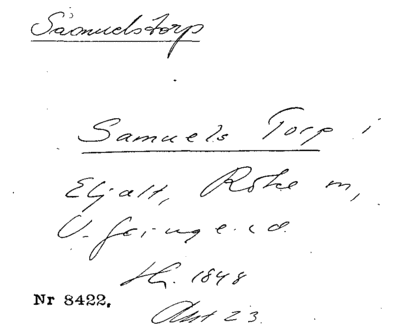 Samuelstorp
Samuels Torp i
Eljalt, Röke sn,
V. Göinge hd.
Hfl. 1848
Nr 8422.
Akt 23.